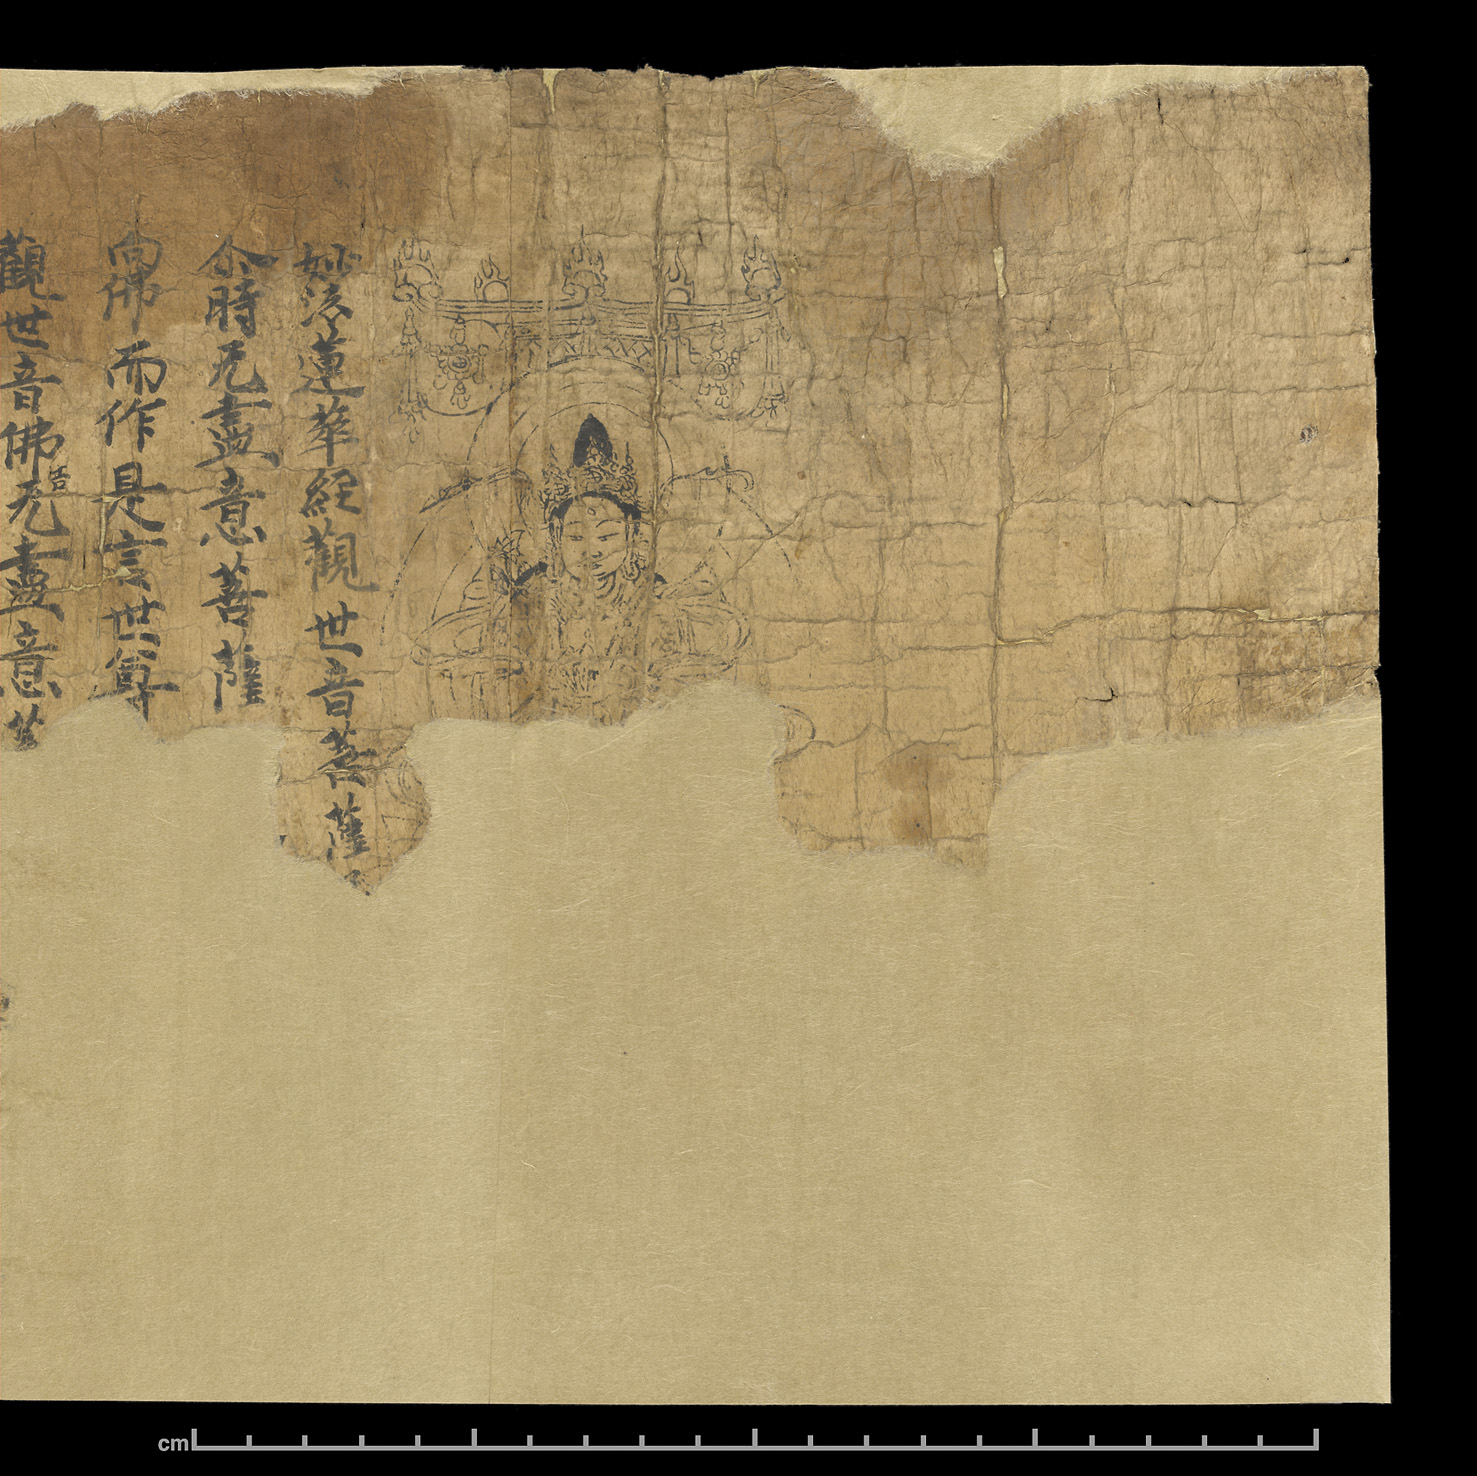 妙法蓮華經觀世音菩薩
尒時无盡意菩薩
向佛而作是言世尊
觀世音佛告无盡意菩
cm